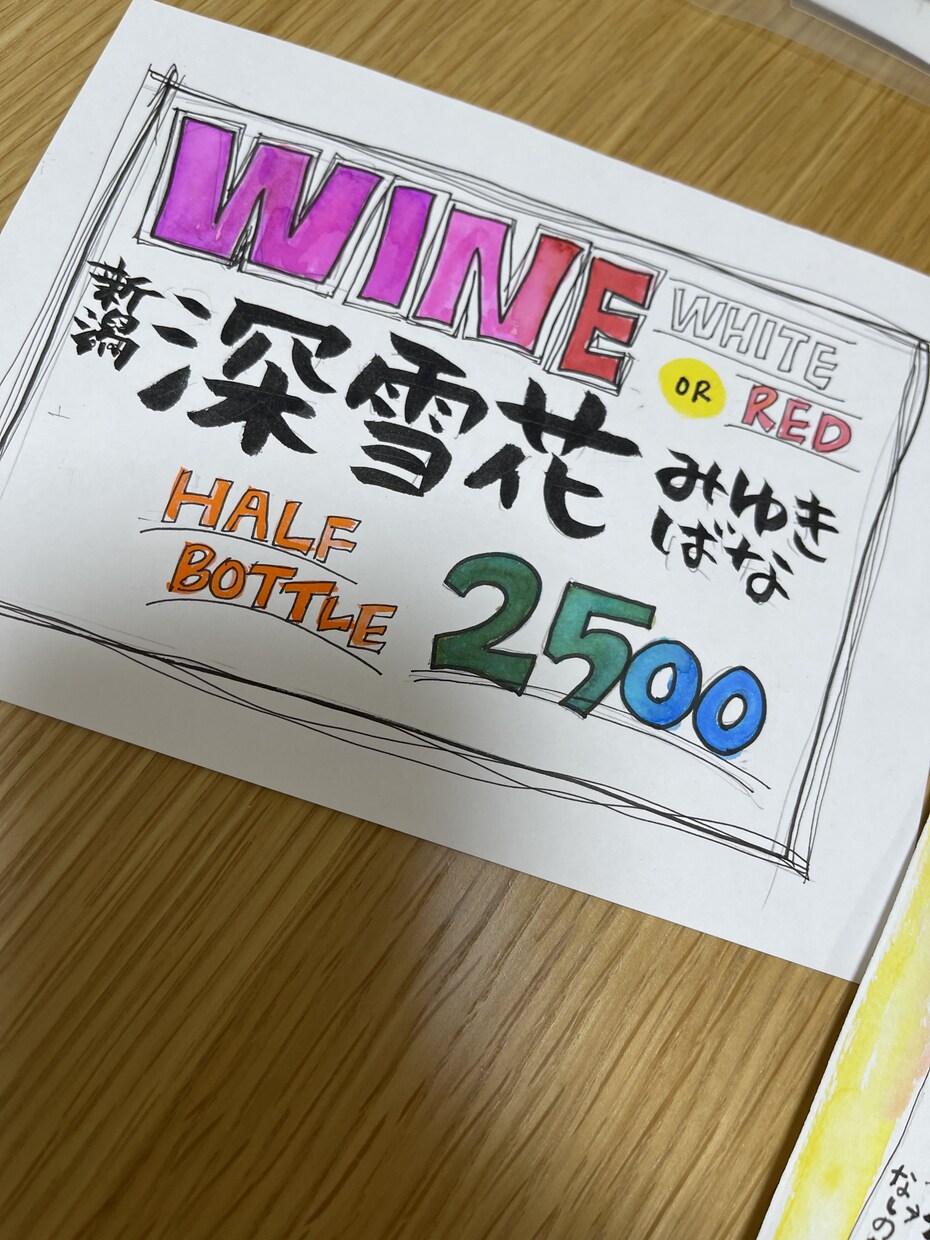 WINE
WHITE
OR RED
新潟
深雪花
みゆき
ばな
HALF
BOTTLE
2500